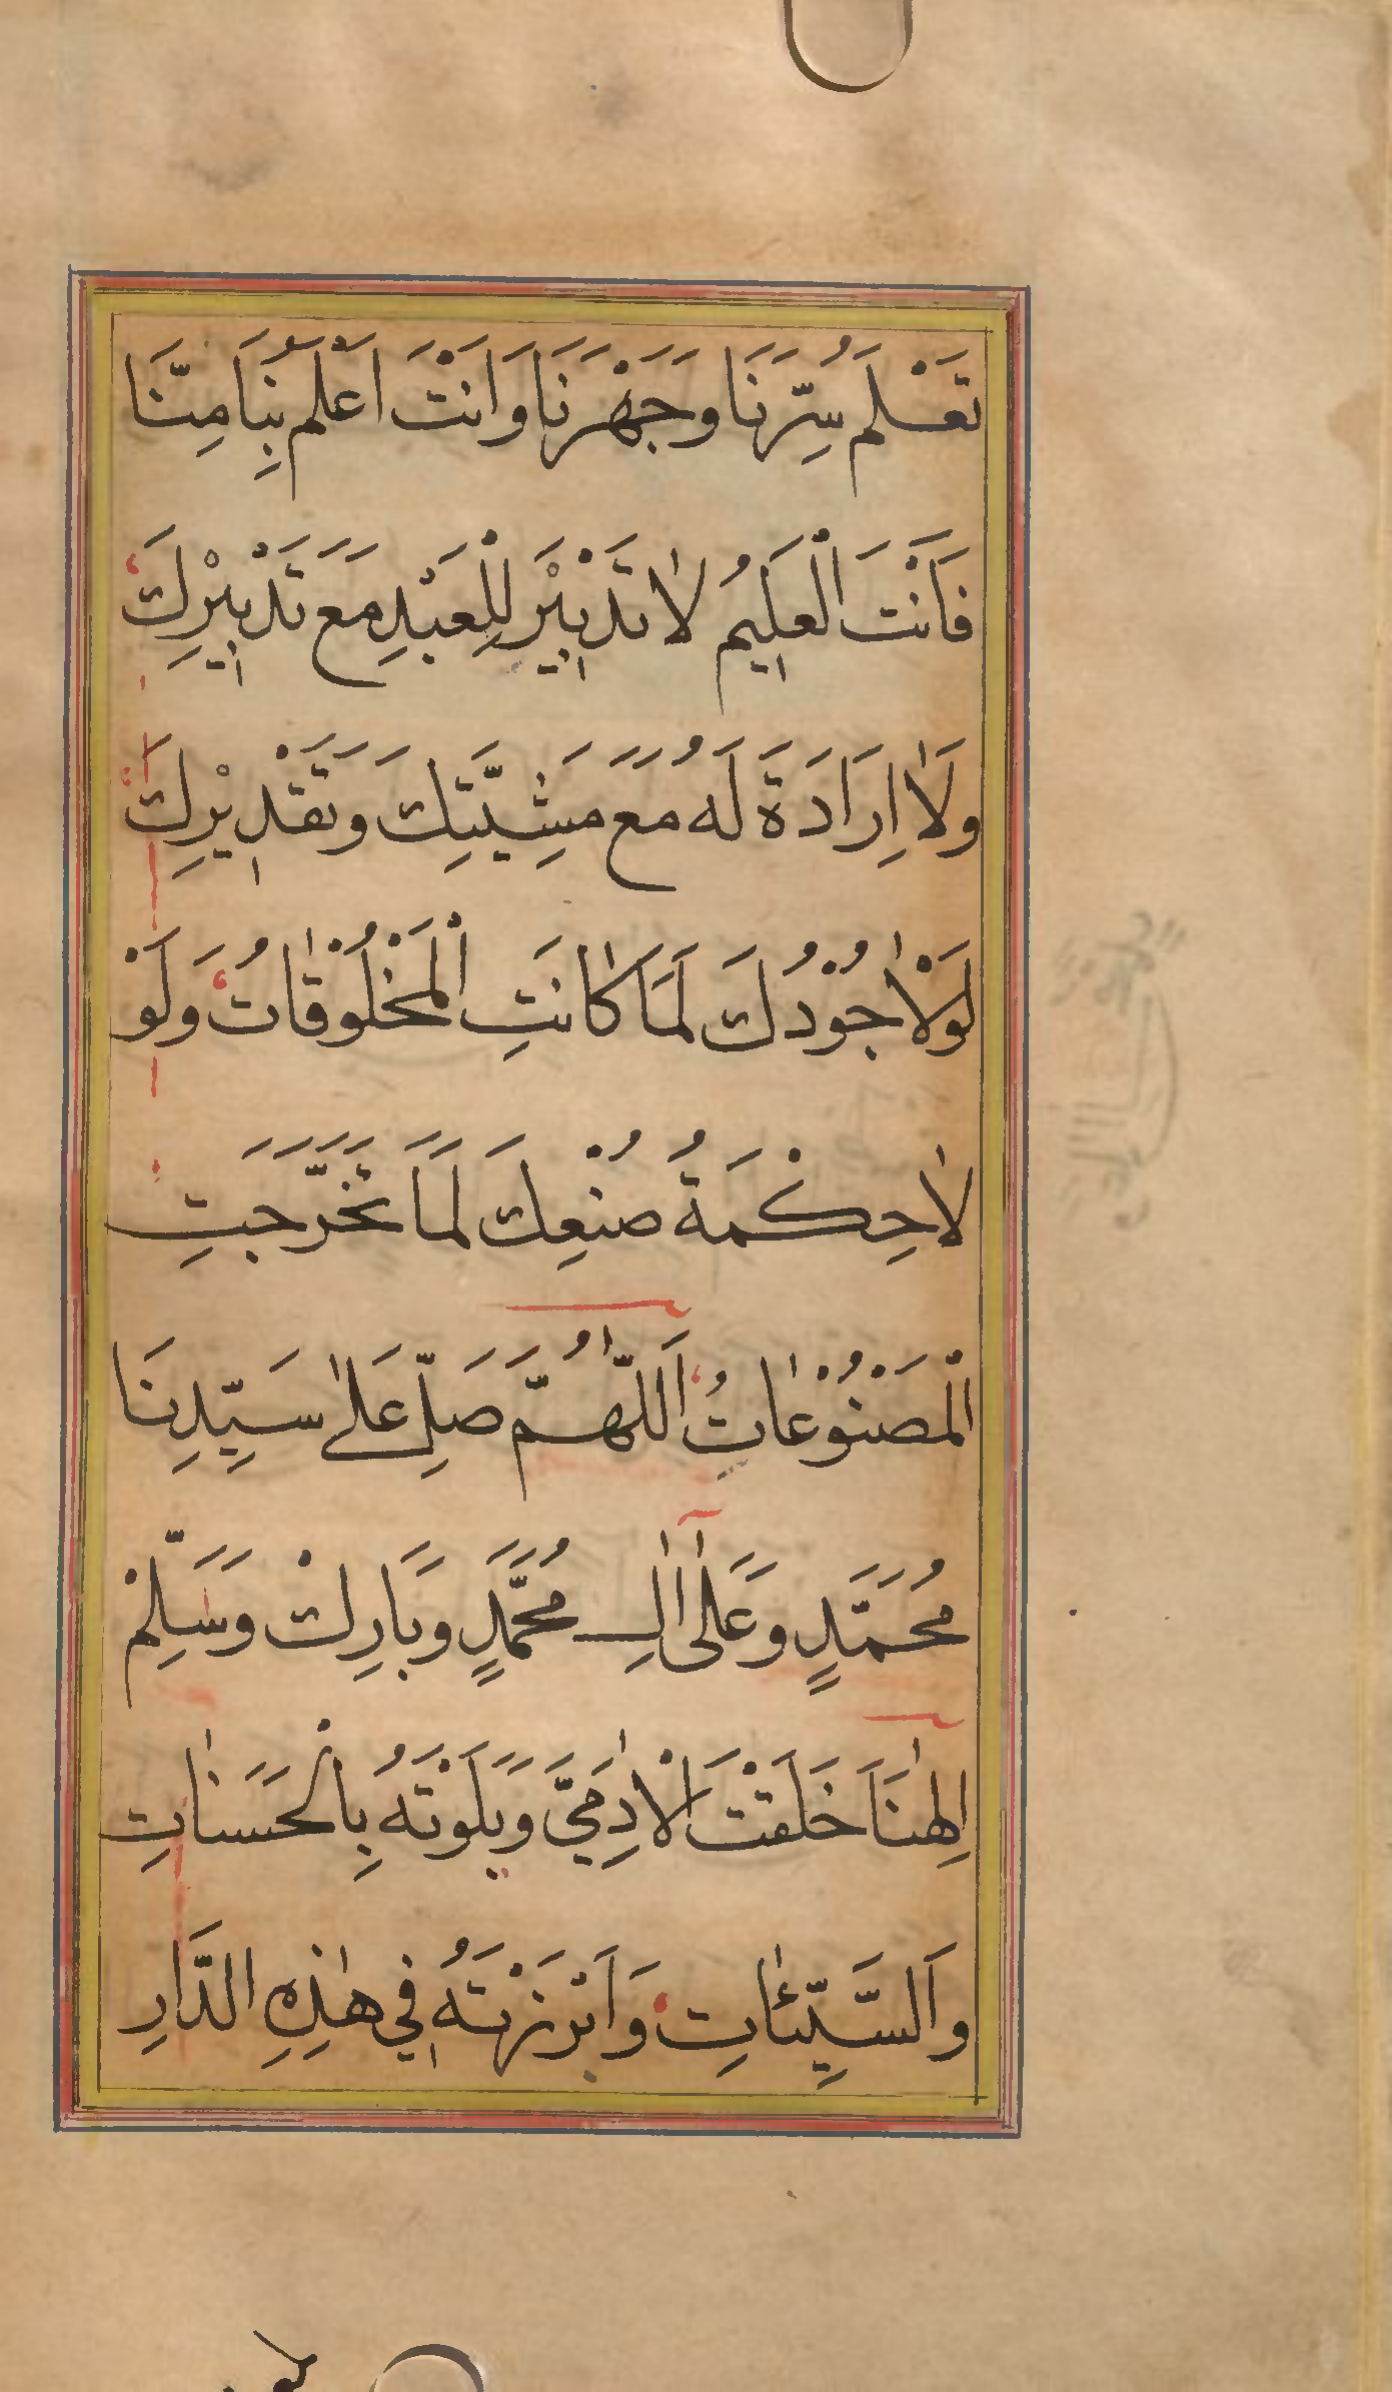 تَعْلَمُ سِرَّنَا وَجَهْرَنَا وَاَنْتَ اَعْلَمُ بِنَا مِنَّا
فَاَنْتَ الْعَلِيمُ لَا تَدْبِيْرَ لِلْعَبْدِ مَعَ تَدْبِيْرِكَ
وَلَا اِرَادَةَ لَهُ مَعَ مَشِيَّتِكَ وَتَقْدِيْرِكَ
لَوْلَا جُوْدُكَ لَمَا كَانَتِ الْمَخْلُوْقَاتُ وَلَوْ
لَا حِكْمَةُ صُنْعِكَ لَمَا تَخَرَّجَتِ
الْمَصْنُوْعَاتُ اَللّٰهُمَّ صَلِّ عَلٰى سَيِّدِنَا
مُحَمَّدٍ وَعَلٰى اٰلِ مُحَمَّدٍ وَبَارِكْ وَسَلِّمْ
اِلٰهَنَا خَلَقْتَ الْاٰدَمِيَّ وَبَلَوْتَهُ بِالْحَسَنَاتِ
وَالسَّيِّئَاتِ وَاَبْرَزْتَهُ فِي هٰذِهِ الدَّارِ